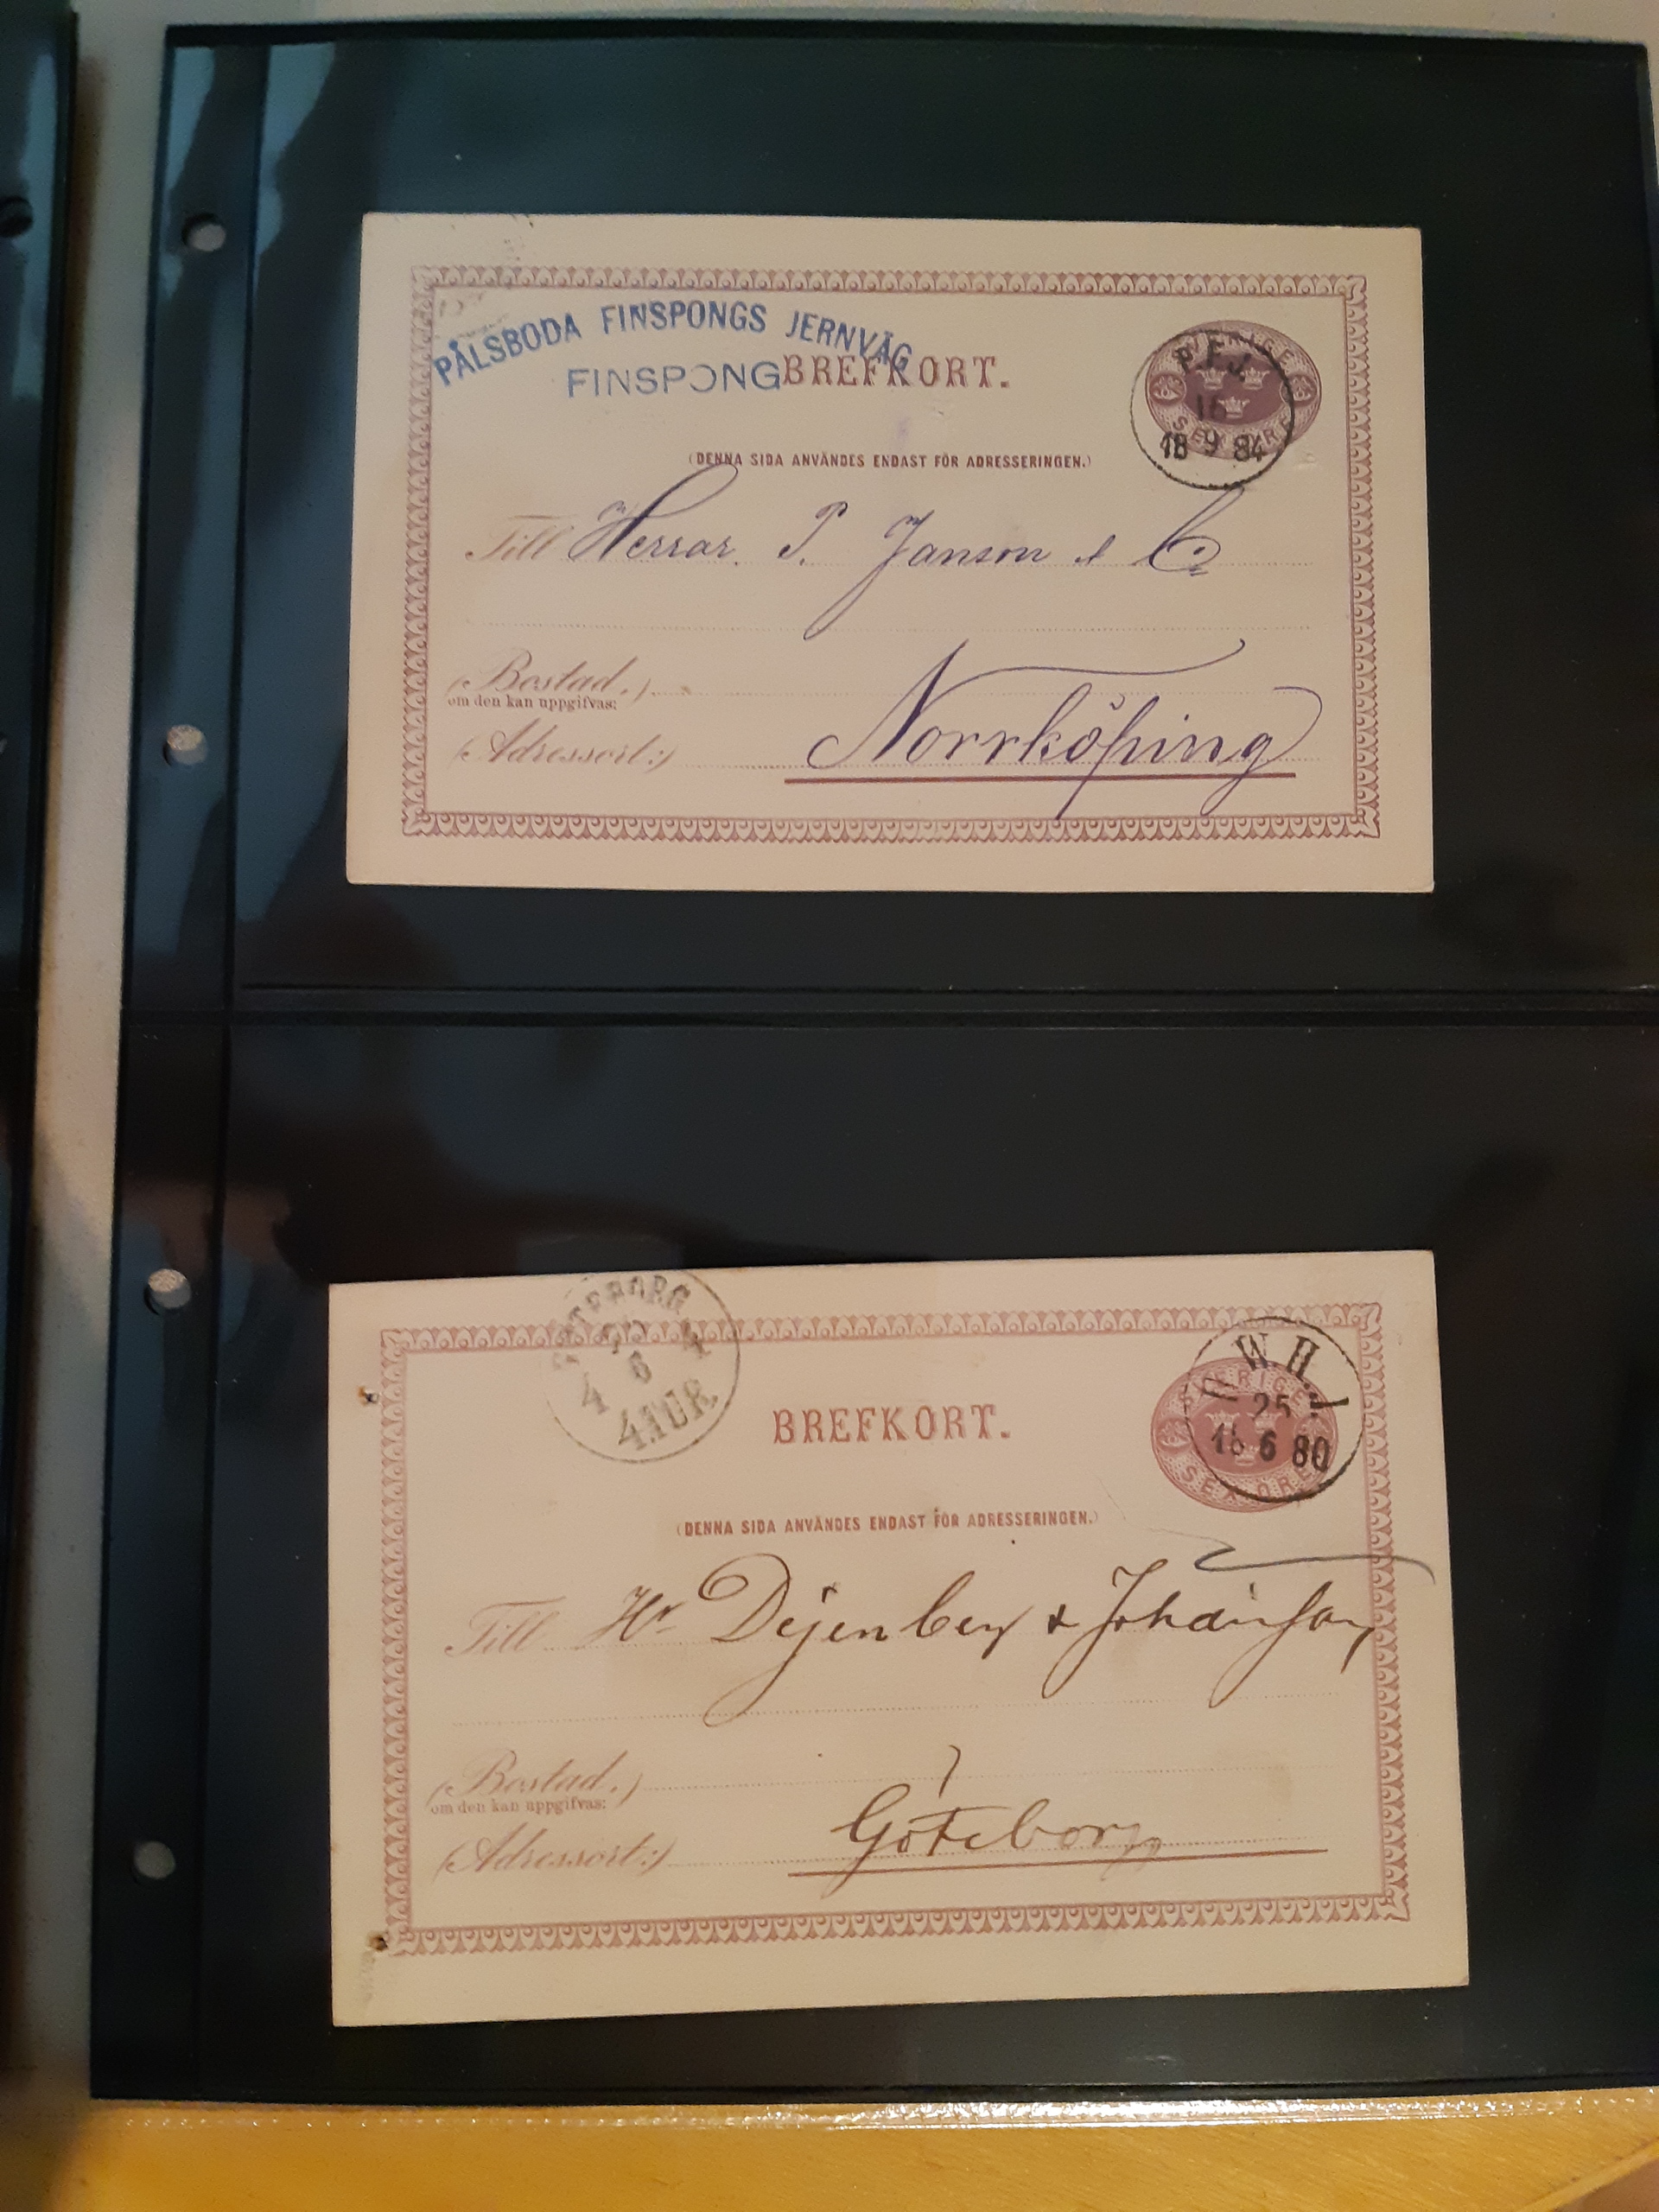 PÅLSBODA FINSPONGS JERNVÄG
FINSPONG
BREFKORT.
SVERIGE
SEX ÖRE
P.F.J.
16
18 9 84
(DENNA SIDA ANVÄNDES ENDAST FÖR ADRESSERINGEN.)
Till Herrar. P. Janson & Co
(Bostad.)
om den kan uppgifvas:
(Adressort:) Norrköping
4 6
4.TUR.
BREFKORT.
SVERIGE
SEX ÖRE
W H.
25
16 6 80
(DENNA SIDA ANVÄNDES ENDAST FÖR ADRESSERINGEN.)
Till Hr Dejenberg & Johansson
(Bostad.)
om den kan uppgifvas:
(Adressort:) Göteborg